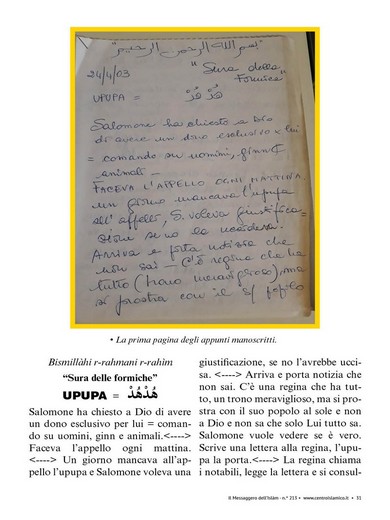 "بسم الله الرحمن الرحيم"
24/4/03
"Sura delle
Formiche"
UPUPA = هُدْهُدْ
Salomone ha chiesto a Dio
di avere un dono esclusivo x lui
= comando su uomini, ginn e
animali -
FACEVA L'APPELLO OGNI MATTINA.
un giorno mancava l'upupa
all'appello, S. voleva giustifica=
zione se no la uccideva.
Arriva e porta notizia che
non sai - C'è regina che ha
tutto (trono meraviglioso), ma
si prostra con il popolo
• La prima pagina degli appunti manoscritti.
Bismillàhi r-rahmani r-rahim
"Sura delle formiche"
UPUPA = هُدْهُدْ
Salomone ha chiesto a Dio di avere
un dono esclusivo per lui = coman-
do su uomini, ginn e animali.<---->
Faceva l'appello ogni mattina.
<----> Un giorno mancava all'ap-
pello l'upupa e Salomone voleva una
giustificazione, se no l'avrebbe ucci-
sa. <----> Arriva e porta notizia che
non sai. C'è una regina che ha tut-
to, un trono meraviglioso, ma si pro-
stra con il suo popolo al sole e non
a Dio e non sa che solo Lui tutto sa.
Salomone vuole vedere se è vero.
Scrive una lettera alla regina, l'upu-
pa la porta. <----> La regina chiama
i notabili, legge la lettera e si consul-
Il Messaggero dell'Islàm - n.° 213 • www.centroislamico.it • 31